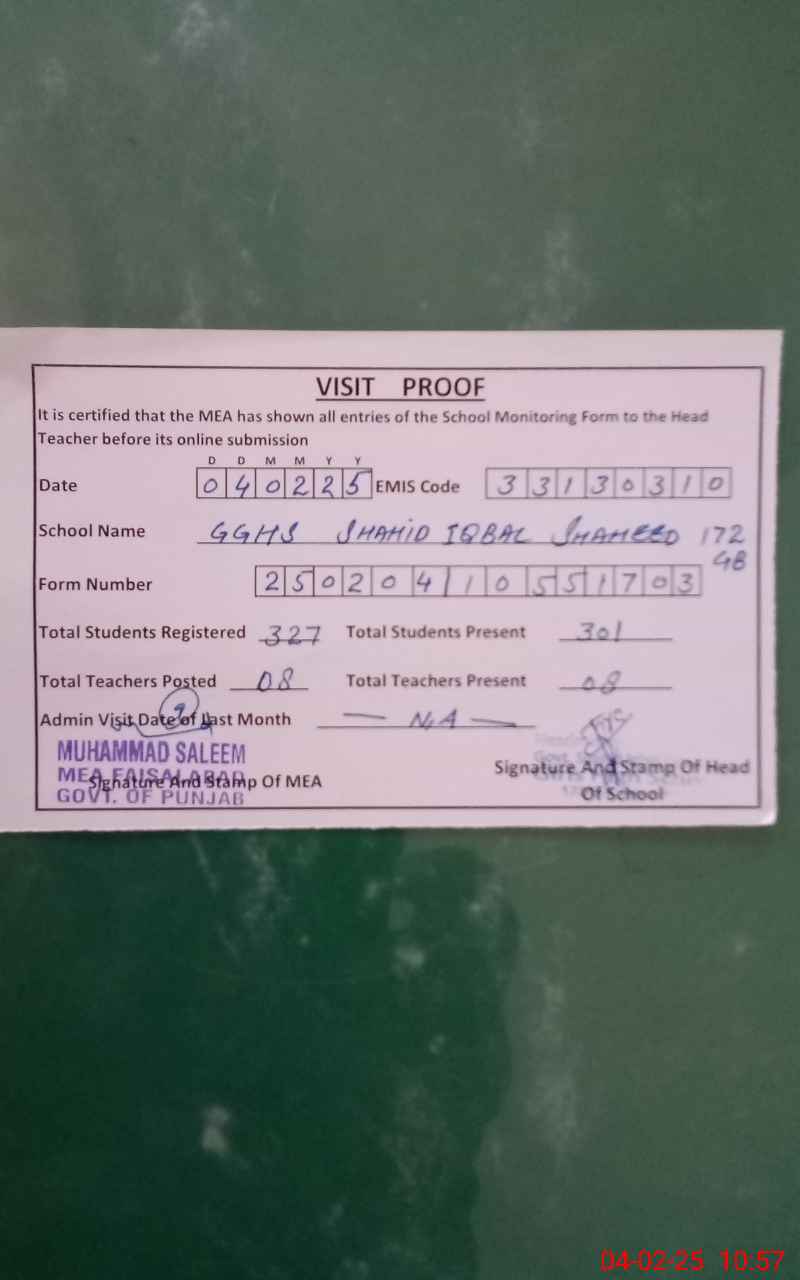 VISIT PROOF
It is certified that the MEA has shown all entries of the School Monitoring Form to the Head
Teacher before its online submission
D D M M Y Y
Date 040225 EMIS Code 33130310
School Name GGHS SHAHID IQBAL SHAHEED 172
GB
Form Number 25020410551703
Total Students Registered 327 Total Students Present 301
Total Teachers Posted 08 Total Teachers Present 08
Admin Visit Date of Last Month — N.A —
MUHAMMAD SALEEM
MEA FAISALABAD
Signature And Stamp Of MEA
GOVT. OF PUNJAB
Signature And Stamp Of Head
Of School
04-02-25 10:57